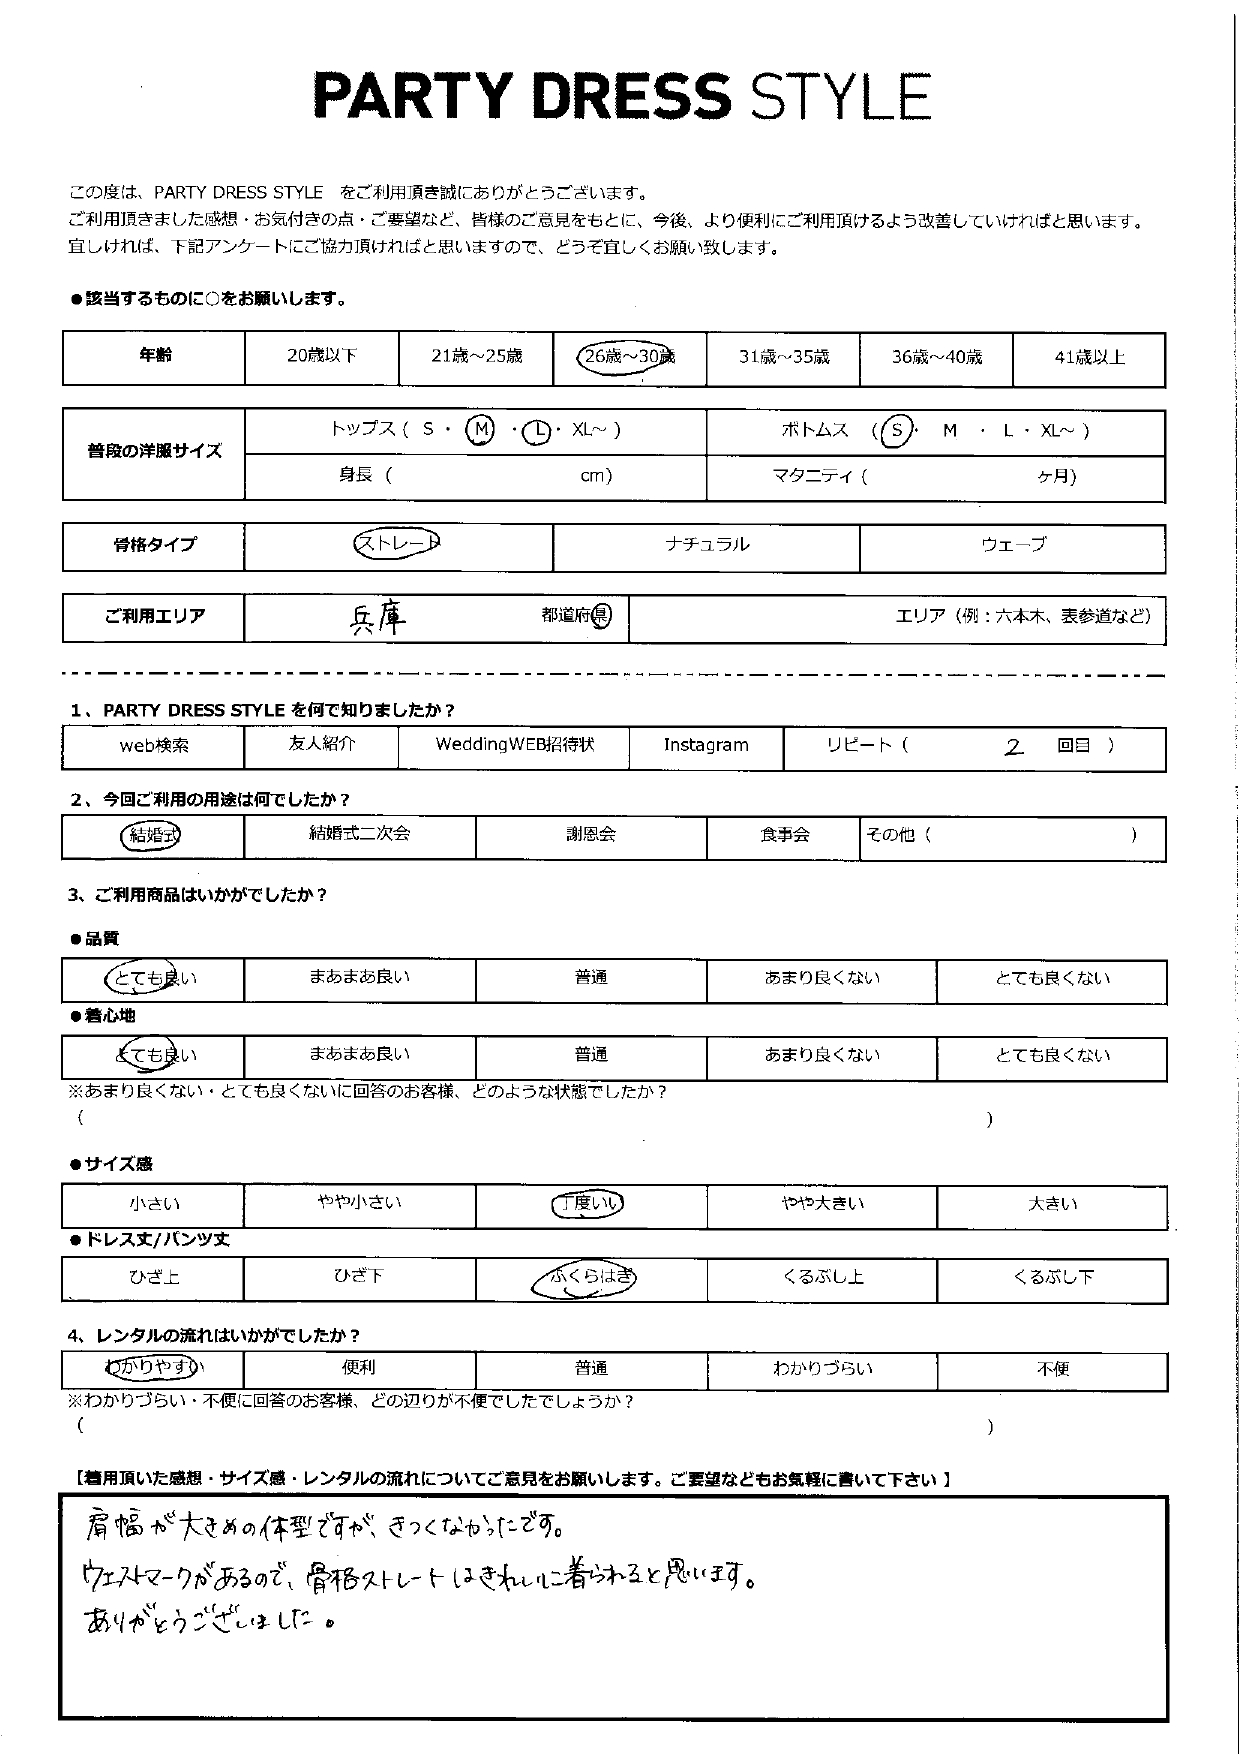 PARTY DRESS STYLE
この度は、PARTY DRESS STYLE をご利用頂き誠にありがとうございます。
ご利用頂きました感想・お気付きの点・ご要望など、皆様のご意見をもとに、今後、より便利にご利用頂けるよう改善していければと思います。
宜しければ、下記アンケートにご協力頂ければと思いますので、どうぞ宜しくお願い致します。
●該当するものに○をお願いします。
年齢 20歳以下 21歳～25歳 26歳～30歳 31歳～35歳 36歳～40歳 41歳以上
普段の洋服サイズ トップス ( S ・ M ・ L ・ XL～ ) ボトムス ( S ・ M ・ L ・ XL～ )
身長 ( cm) マタニティ ( ヶ月)
骨格タイプ ストレート ナチュラル ウェーブ
ご利用エリア 兵庫 都道府県 エリア（例：六本木、表参道など）
1、PARTY DRESS STYLE を何で知りましたか？
web検索 友人紹介 WeddingWEB招待状 Instagram リピート ( 2 回目 )
2、今回ご利用の用途は何でしたか？
結婚式 結婚式二次会 謝恩会 食事会 その他 ( )
3、ご利用商品はいかがでしたか？
●品質
とても良い まあまあ良い 普通 あまり良くない とても良くない
●着心地
とても良い まあまあ良い 普通 あまり良くない とても良くない
※あまり良くない・とても良くないに回答のお客様、どのような状態でしたか？
( )
●サイズ感
小さい やや小さい 丁度いい やや大きい 大きい
●ドレス丈/パンツ丈
ひざ上 ひざ下 ふくらはぎ くるぶし上 くるぶし下
4、レンタルの流れはいかがでしたか？
わかりやすい 便利 普通 わかりづらい 不便
※わかりづらい・不便に回答のお客様、どの辺りが不便でしたでしょうか？
( )
【着用頂いた感想・サイズ感・レンタルの流れについてご意見をお願いします。ご要望などもお気軽に書いて下さい】
肩幅が大きめの体型ですが、きつくなかったです。
ウエストマークがあるので、骨格ストレートはきれいに着られると思います。
ありがとうございました。